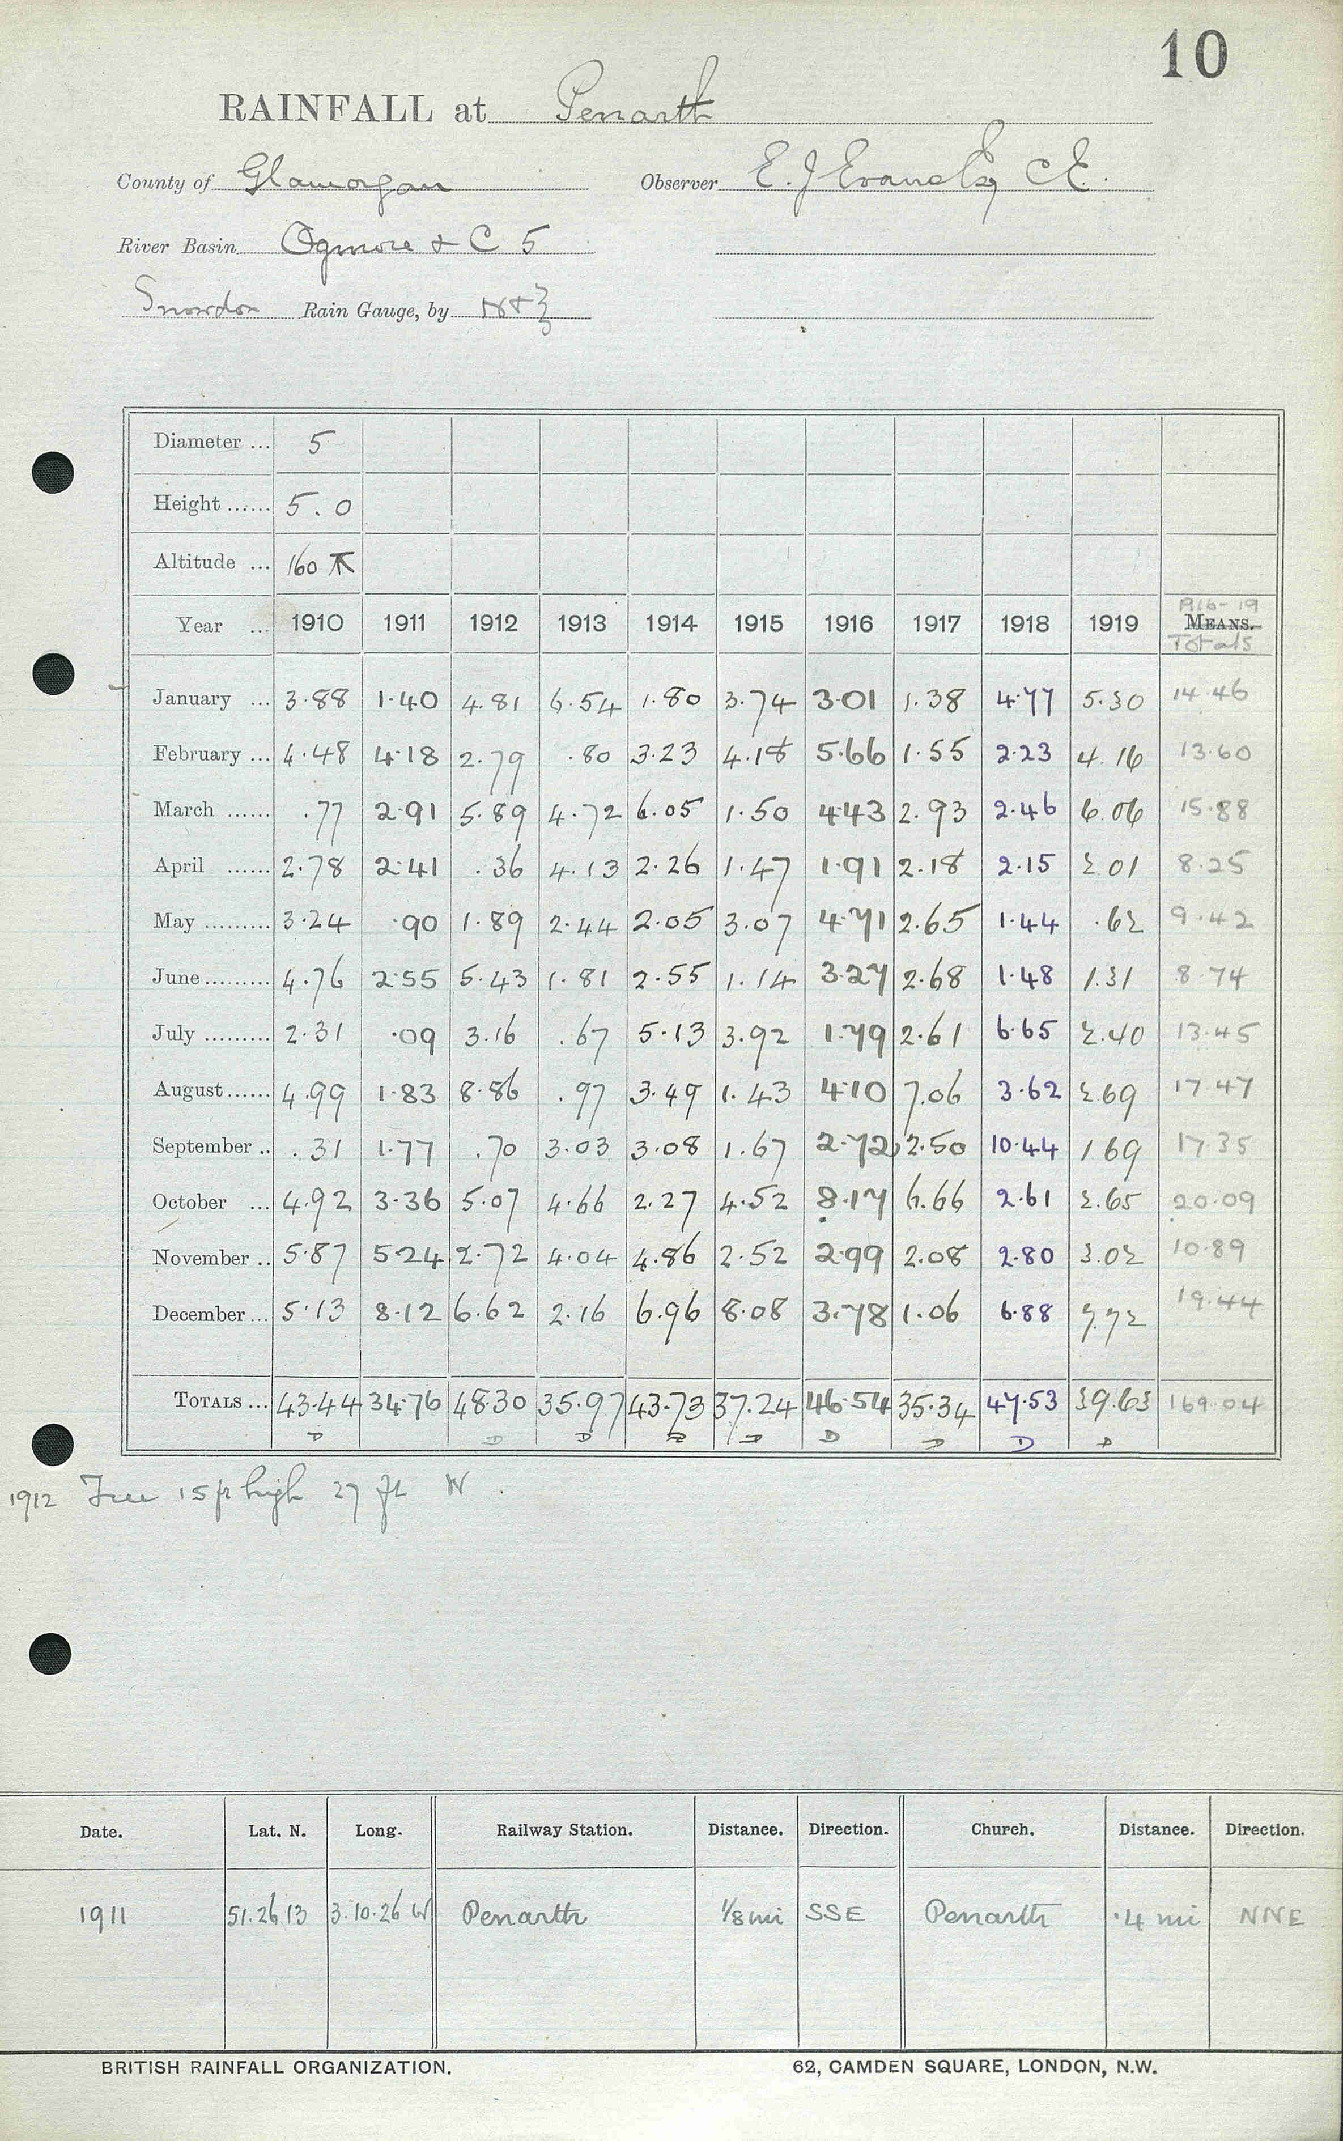 10
RAINFALL at Penarth
County of Glamorgan Observer E. J Evans Esq C.E.
River Basin Ogmore & C 5
Snowdon Rain Gauge, by N & Z
Diameter ... 5
Height ...... 5.0
Altitude ... 160
Year ... 1910 1911 1912 1913 1914 1915 1916 1917 1918 1919 1916-19 MEANS. Totals
January ... 3.88 1.40 4.81 6.54 1.80 3.74 3.01 1.38 4.77 5.30 14.46
February ... 4.48 4.18 2.79 .80 3.23 4.18 5.66 1.55 2.23 4.16 13.60
March ...... .77 2.91 5.89 4.72 6.05 1.50 4.43 2.93 2.46 6.06 15.88
April ...... 2.78 2.41 .36 4.13 2.26 1.47 1.91 2.18 2.15 2.01 8.25
May ......... 3.24 .90 1.89 2.44 2.05 3.07 4.71 2.65 1.44 .62 9.42
June ......... 4.76 2.55 5.43 1.81 2.55 1.14 3.27 2.68 1.48 1.31 8.74
July ......... 2.31 .09 3.16 .67 5.13 3.92 1.79 2.61 6.65 2.40 13.45
August ...... 4.99 1.83 8.86 .97 3.49 1.43 4.10 7.06 3.62 2.69 17.47
September .. .31 1.77 .70 3.03 3.08 1.67 2.72 2.50 10.44 1.69 17.35
October ... 4.92 3.36 5.07 4.66 2.27 4.52 8.17 6.66 2.61 2.65 20.09
November .. 5.87 5.24 2.72 4.04 4.86 2.52 2.99 2.08 2.80 3.02 10.89
December ... 5.13 8.12 6.62 2.16 6.96 8.08 3.78 1.06 6.88 7.72 19.44
TOTALS ... 43.44 34.76 48.30 35.97 43.73 37.24 46.54 35.34 47.53 39.63 169.04
D D D D D D D D D
1912 Tree 15 ft high 27 ft W.
Date. Lat. N. Long. Railway Station. Distance. Direction. Church. Distance. Direction.
1911 51.26 13 3.10.26 W Penarth 1/8 mi SSE Penarth .4 mi NNE
BRITISH RAINFALL ORGANIZATION. 62, CAMDEN SQUARE, LONDON, N.W.